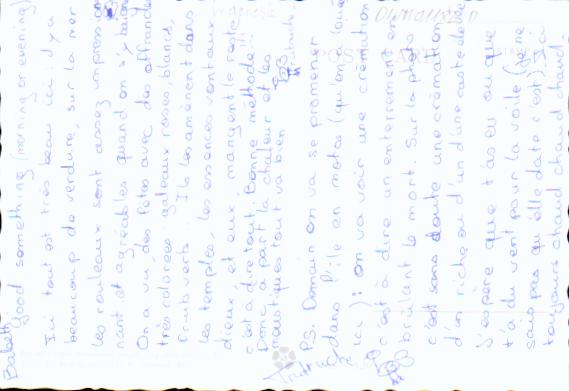 Babeth
good something (morning or evening)
Ici tout est très beau ici. Il y a
beaucoup de verdure, sur la mer
les rouleaux sont assez impression
nant et agréables quand on s'y baigne
On a vu des fêtes avec des offrandes
très colorées gateaux roses, blancs,
fruits verts. Ils les amènent dans
les temples, les essences vont aux
dieux, et eux, mangent le reste
c'est à dire tout. Bonne méthode!!
Donc, à part la chaleur et les
moustiques tout va bien
P.S. Demain on va se promener
dans l'île en motos (qu'on loue
ici): on va voir une crémation
c'est à dire un enterrement en
brûlant le mort. Sur la photo
c'est sans doute une crémation
d'un riche ou d'un d'une caste élevée
J'espère que t'as eu ou que
t'a du vent pour la voile (je ne
sais pas quelle date c'est). Ici
toujours chaud chaud chaud chaud
POST